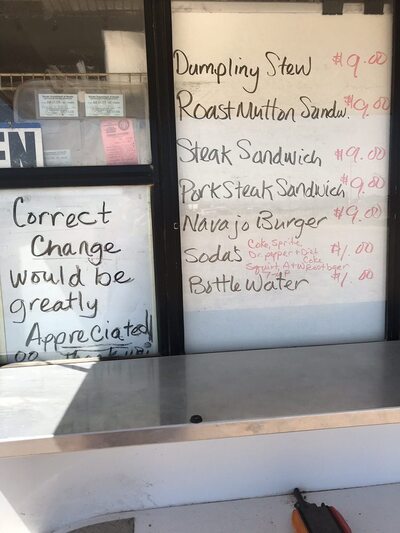 EN
Correct
Change
would be
greatly
Appreciated!!
Dumpling Stew $9.00
Roast Mutton Sandw. $9.00
Steak Sandwich $9.00
Pork Steak Sandwich $9.00
Navajo Burger $9.00
Soda's Coke, Sprite, $1.00
Dr. pepper + Diet
Coke
Squirt, A+W rootbeer
7-UP
Bottle Water $1.00